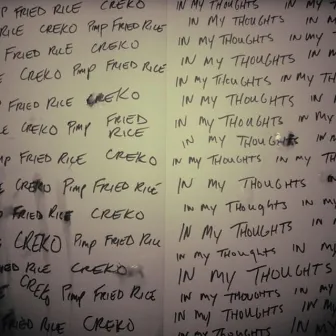 P FRIED RICE CREKO
RICE CREKO PIMP FRIED RICE
FRIED RICE CREKO
CREKO PIMP FRIED RICE
FRIED RICE CREKO
CREKO PIMP FRIED RICE
FRIED RICE CREKO
CREKO PIMP FRIED RICE
FRIED RICE CREKO
CREKO PIMP FRIED RICE
RIED RICE CREKO
CREKO PIMP FRIED RICE
FRIED RICE CREKO
IN MY THOUGHTS
IN MY THOUGHTS IN MY
IN MY THOUGHTS IN MY
IN MY THOUGHTS IN MY
IN MY THOUGHTS IN MY
IN MY THOUGHTS IN MY
IN MY THOUGHTS IN MY
IN MY THOUGHTS IN MY
IN MY THOUGHTS IN MY
IN MY THOUGHTS
IN MY THOUGHTS IN MY
IN MY THOUGHTS IN
IN MY THOUGHTS IN MY
IN MY THOUGHTS
IN MY THOUGHTS IN MY
IN MY THOUGHTS IN MY
IN MY THOUGHTS